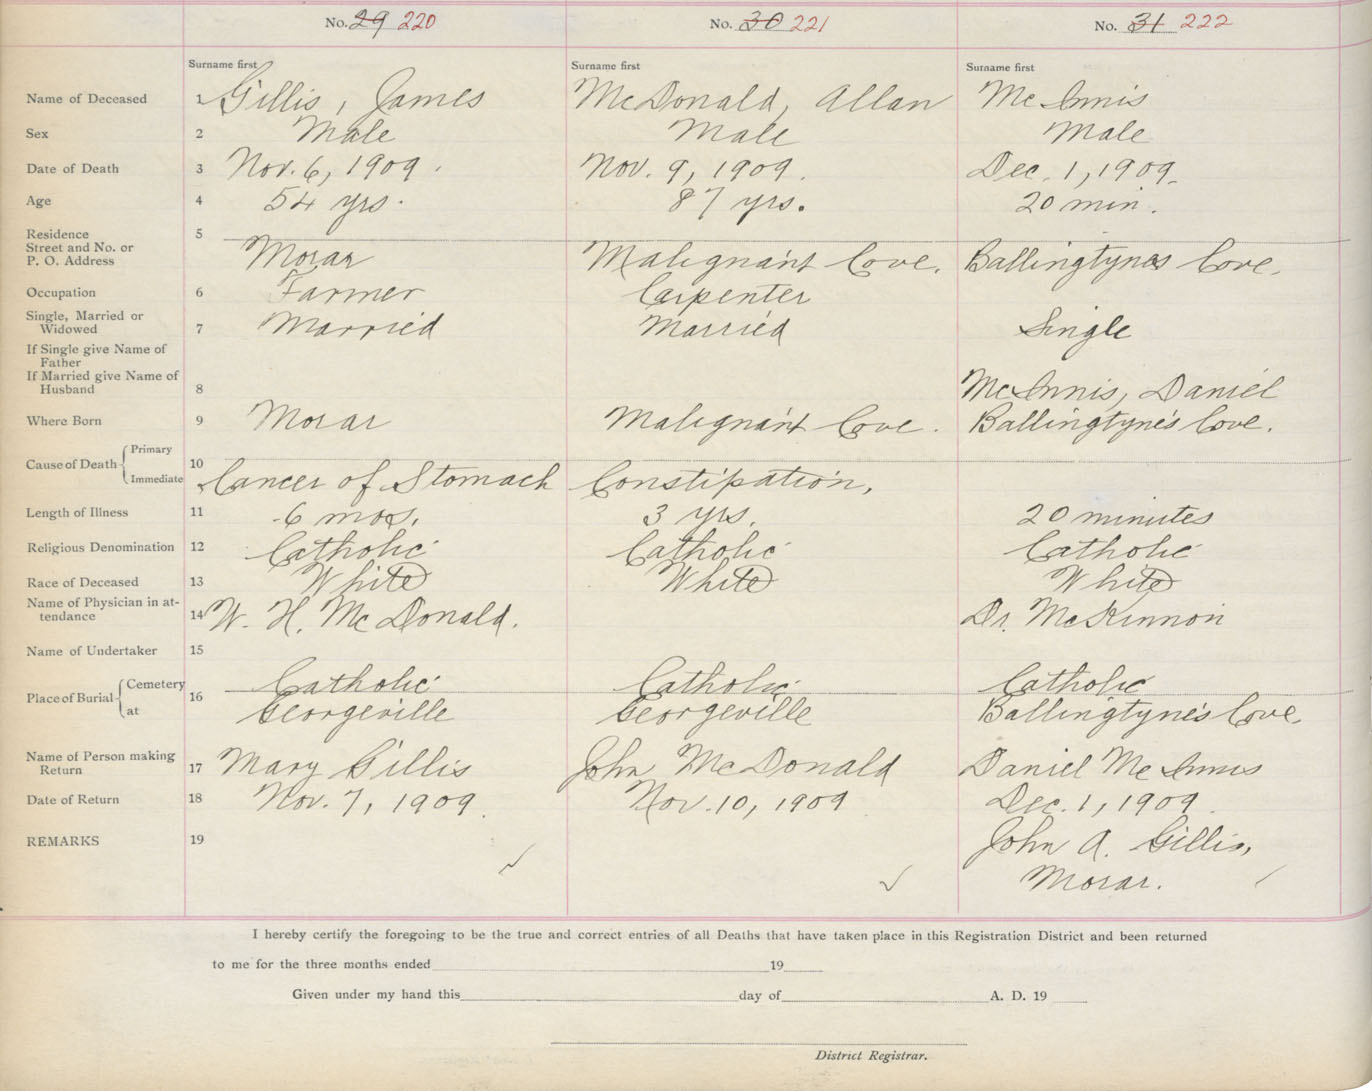 No. 29 220 No. 30 221 No. 31 222
Surname first Surname first Surname first
Name of Deceased 1 Gillis, James McDonald, Allan McInnis
Sex 2 Male Male Male
Date of Death 3 Nov. 6, 1909. Nov. 9, 1909. Dec. 1, 1909.
Age 4 54 yrs. 87 yrs. 20 min.
Residence 5
Street and No. or
P. O. Address Morar Malignant Cove. Ballingtynes Cove.
Occupation 6 Farmer Carpenter
Single, Married or
Widowed 7 Married Married Single
If Single give Name of
Father
If Married give Name of
Husband 8 McInnis, Daniel
Where Born 9 Morar Malignant Cove. Ballingtyne's Cove.
Cause of Death Primary
Immediate 10 Cancer of Stomach Constipation,
Length of Illness 11 6 mos. 3 yrs. 20 minutes
Religious Denomination 12 Catholic Catholic Catholic
Race of Deceased 13 White White White
Name of Physician in at-
tendance 14 W. H. McDonald. Dr. McKinnon
Name of Undertaker 15
Place of Burial Cemetery 16 Catholic Catholic Catholic
at Georgeville Georgeville Ballingtyne's Cove
Name of Person making
Return 17 Mary Gillis John McDonald Daniel McInnis
Date of Return 18 Nov. 7, 1909. Nov. 10, 1909 Dec. 1, 1909.
REMARKS 19 John A. Gillis,
Morar.
I hereby certify the foregoing to be the true and correct entries of all Deaths that have taken place in this Registration District and been returned
to me for the three months ended 19
Given under my hand this day of A. D. 19
District Registrar.